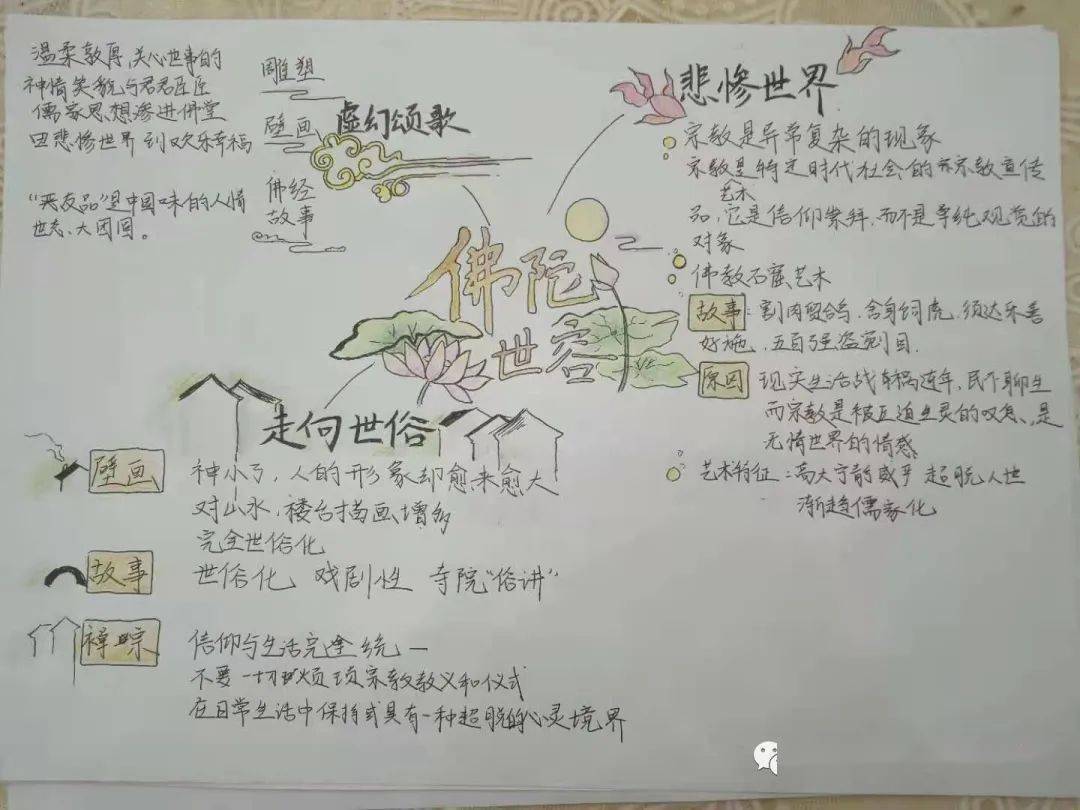 温柔敦厚,关心世事的
神情笑貌与君君臣臣
儒家思想渗进佛堂
由悲惨世界到欢乐幸福
"恶友品"是中国味的人情
世态、大团圆。
雕塑
壁画
佛经
故事
虚幻颂歌
悲惨世界
宗教是异常复杂的现象
宗教是特定时代社会的宗教宣传
艺术
品,它是信仰崇拜,而不是单纯观赏的
对象
佛教石窟艺术
故事:割肉贸鸽、舍身饲虎、须达乐善
好施、五百强盗剜目.
原因 现实生活战祸连年,民不聊生
而宗教是被压迫生灵的叹息,是
无情世界的情感
艺术特征:高大宁静威严 超脱人世
渐趋儒家化
佛陀
世容
走向世俗
壁画 神小了,人的形象却愈来愈大
对山水,楼台描画增多
完全世俗化
故事 世俗化 戏剧性 寺院"俗讲"
禅宗 信仰与生活完全统一
不要一切烦琐宗教教义和仪式
在日常生活中保持或具有一种超脱的心灵境界